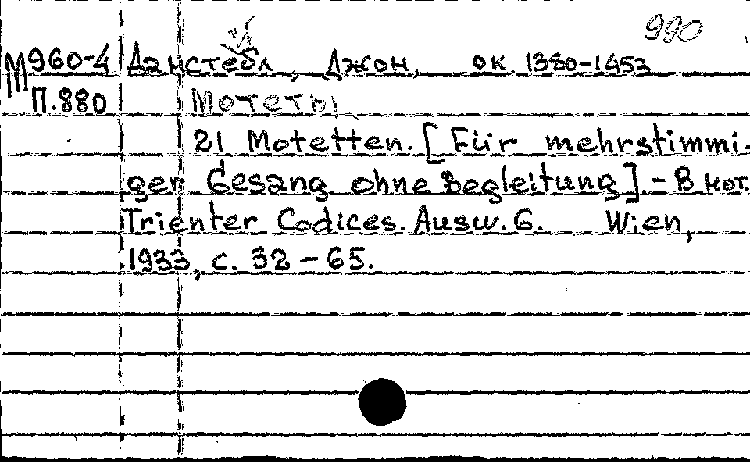 990
М960-4 Данстебл, Джон, ок. 1380-1453
П.880 Мотеты
21 Motetten. [Für mehrstimmi-
gen Gesang ohne Begleitung]. - В кн.
Trienter Codices. Ausw. 6. Wien,
1933, с. 32 - 65.